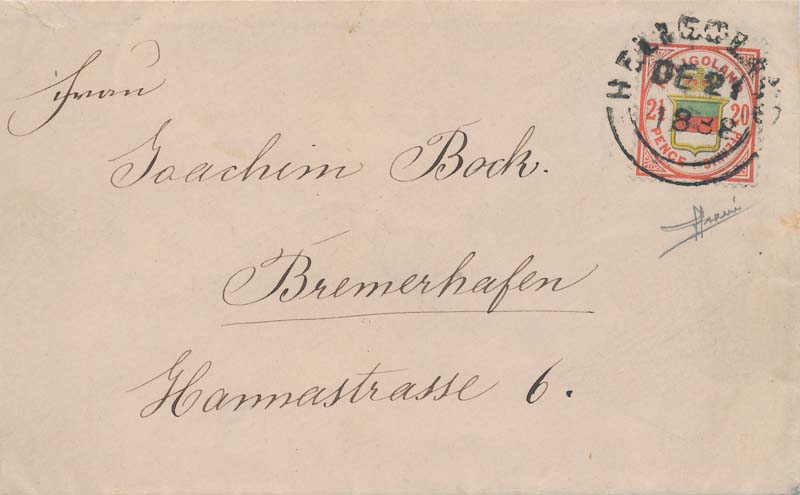 Frau
Joachim Bock.
Bremerhafen
Hannastrasse 6.
HELIGOLAND
DE 21
1882
HELIGOLAND
2½ 20
PENCE PFENNIG